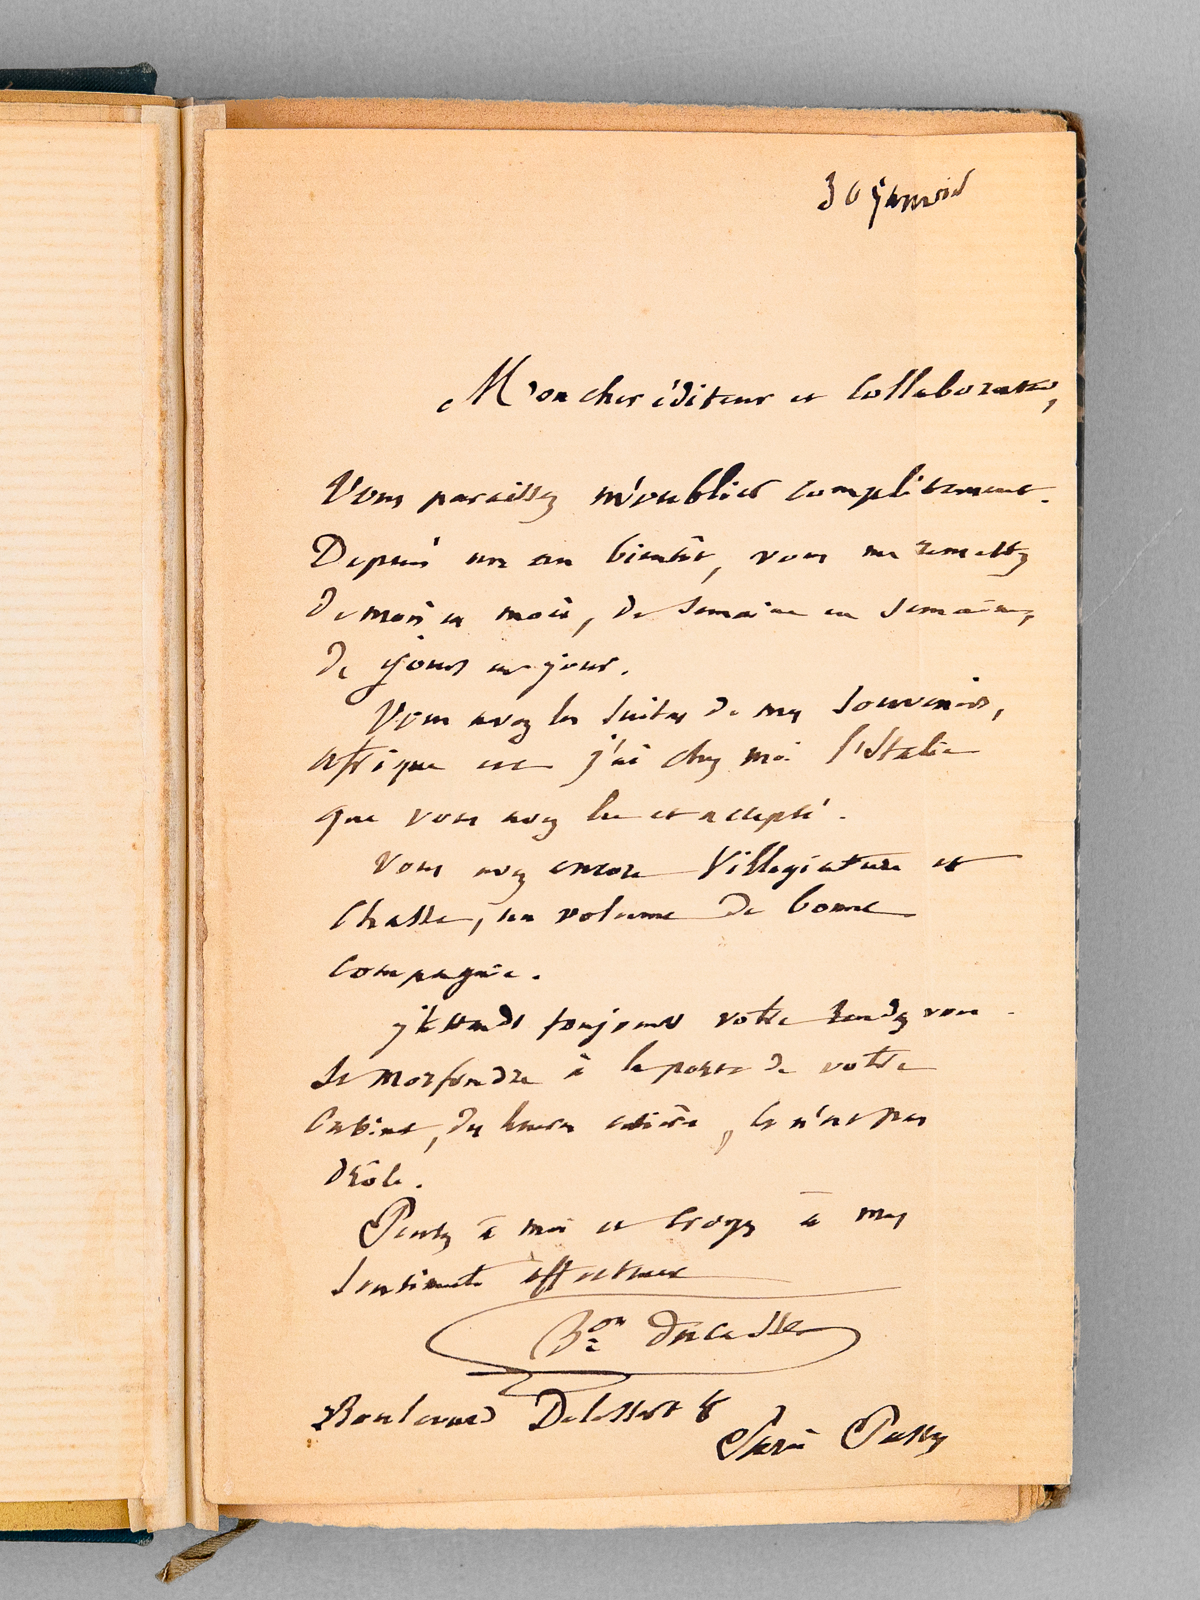 30 janvier
Mon cher éditeur et Collaborateur,
Vous paraissez m'oublier complètement.
Depuis un an bientôt, vous me remettez
de mois en mois, de semaine en semaine,
de jour en jour.
Vous avez les suites de mes souvenirs,
Afrique et j'ai chez moi l'Italie
que vous avez lue et accepté.
Vous avez encore Villégiature et
Chasse, un volume de bonne
Compagnie.
J'attends toujours votre rendez vous
Se morfondre à la porte de votre
Cabinet, des heures entières, ce n'est pas
drôle.
Pensez à moi et croyez à mes
Sentiments affectueux
Bon Ducasse
Boulevard Delessert 8
Paris Passy